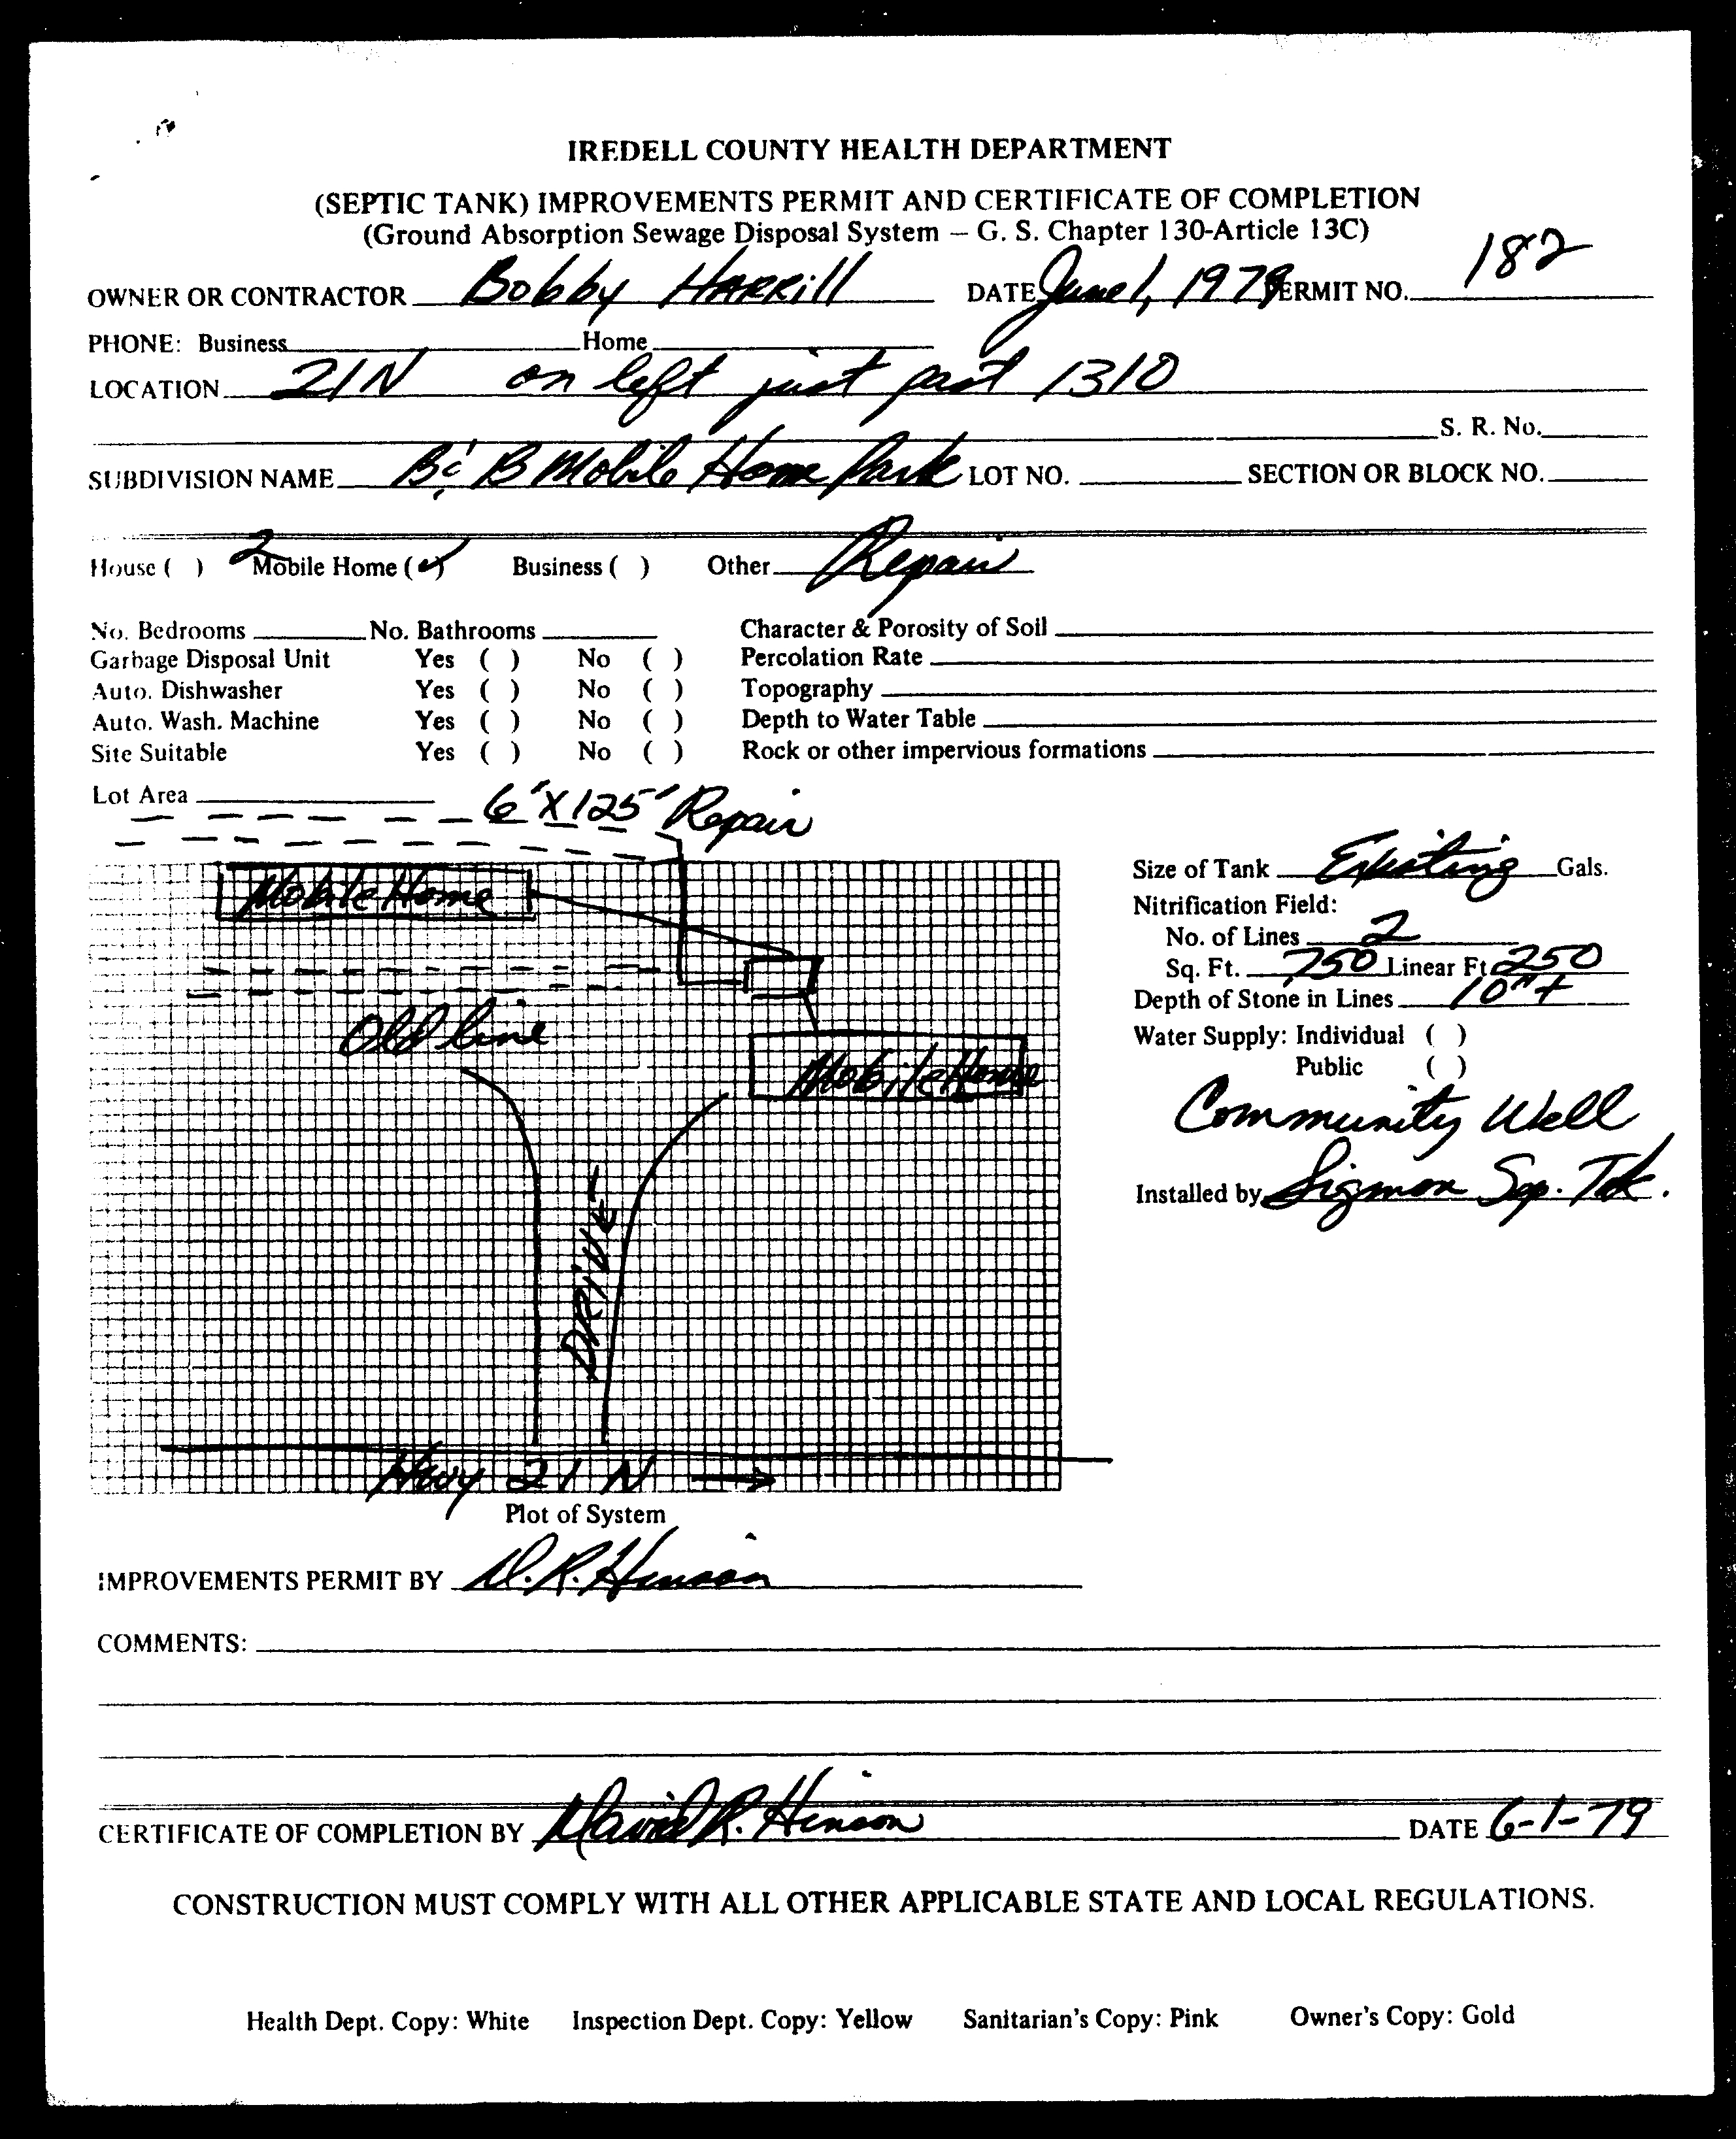 IREDELL COUNTY HEALTH DEPARTMENT
(SEPTIC TANK) IMPROVEMENTS PERMIT AND CERTIFICATE OF COMPLETION
(Ground Absorption Sewage Disposal System – G. S. Chapter 130-Article 13C)
OWNER OR CONTRACTOR Bobby HARRill DATE June 1, 1979 PERMIT NO. 182
PHONE: Business Home
LOCATION 21N on left just past 1310
S. R. No.
SUBDIVISION NAME B & B Mobile Home Park LOT NO. SECTION OR BLOCK NO.
House ( ) 2 Mobile Home (✓) Business ( ) Other Repair
No. Bedrooms No. Bathrooms Character & Porosity of Soil
Garbage Disposal Unit Yes ( ) No ( ) Percolation Rate
Auto. Dishwasher Yes ( ) No ( ) Topography
Auto. Wash. Machine Yes ( ) No ( ) Depth to Water Table
Site Suitable Yes ( ) No ( ) Rock or other impervious formations
Lot Area
6' X 125' Repair
Mobile Home
Old line
Mobile Home
DRIVE
Hwy 21 N
Plot of System
Size of Tank Existing Gals.
Nitrification Field:
No. of Lines 2
Sq. Ft. 750 Linear Ft 250
Depth of Stone in Lines 10"+
Water Supply: Individual ( )
Public ( )
Community Well
Installed by Sigmon Sep. Tk.
IMPROVEMENTS PERMIT BY D. R. Hinson
COMMENTS:
CERTIFICATE OF COMPLETION BY David R. Hinson DATE 6-1-79
CONSTRUCTION MUST COMPLY WITH ALL OTHER APPLICABLE STATE AND LOCAL REGULATIONS.
Health Dept. Copy: White Inspection Dept. Copy: Yellow Sanitarian's Copy: Pink Owner's Copy: Gold